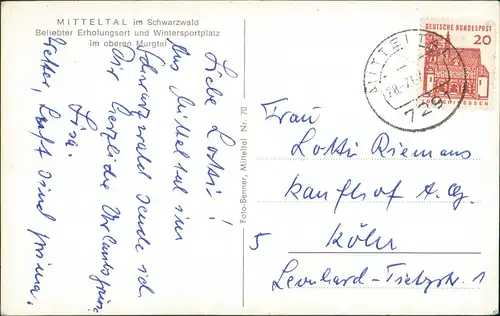 MITTELTAL im Schwarzwald
Beliebter Erholungsort und Wintersportplatz
im oberen Murgtal
Liebe Lotti!
Aus Mitteltal im
Schwarzwald sende ich
Dir herzliche Urlaubsgrüße
Lisa.
Wetter, Luft sind prima.
Foto-Benner, Mitteltal Nr. 70
DEUTSCHE BUNDESPOST
20
MITTELTAL
7291
Frau
Lotti Riemans
Kaufhof A.G.
5 Köln
Leonhard-Tietzstr. 1